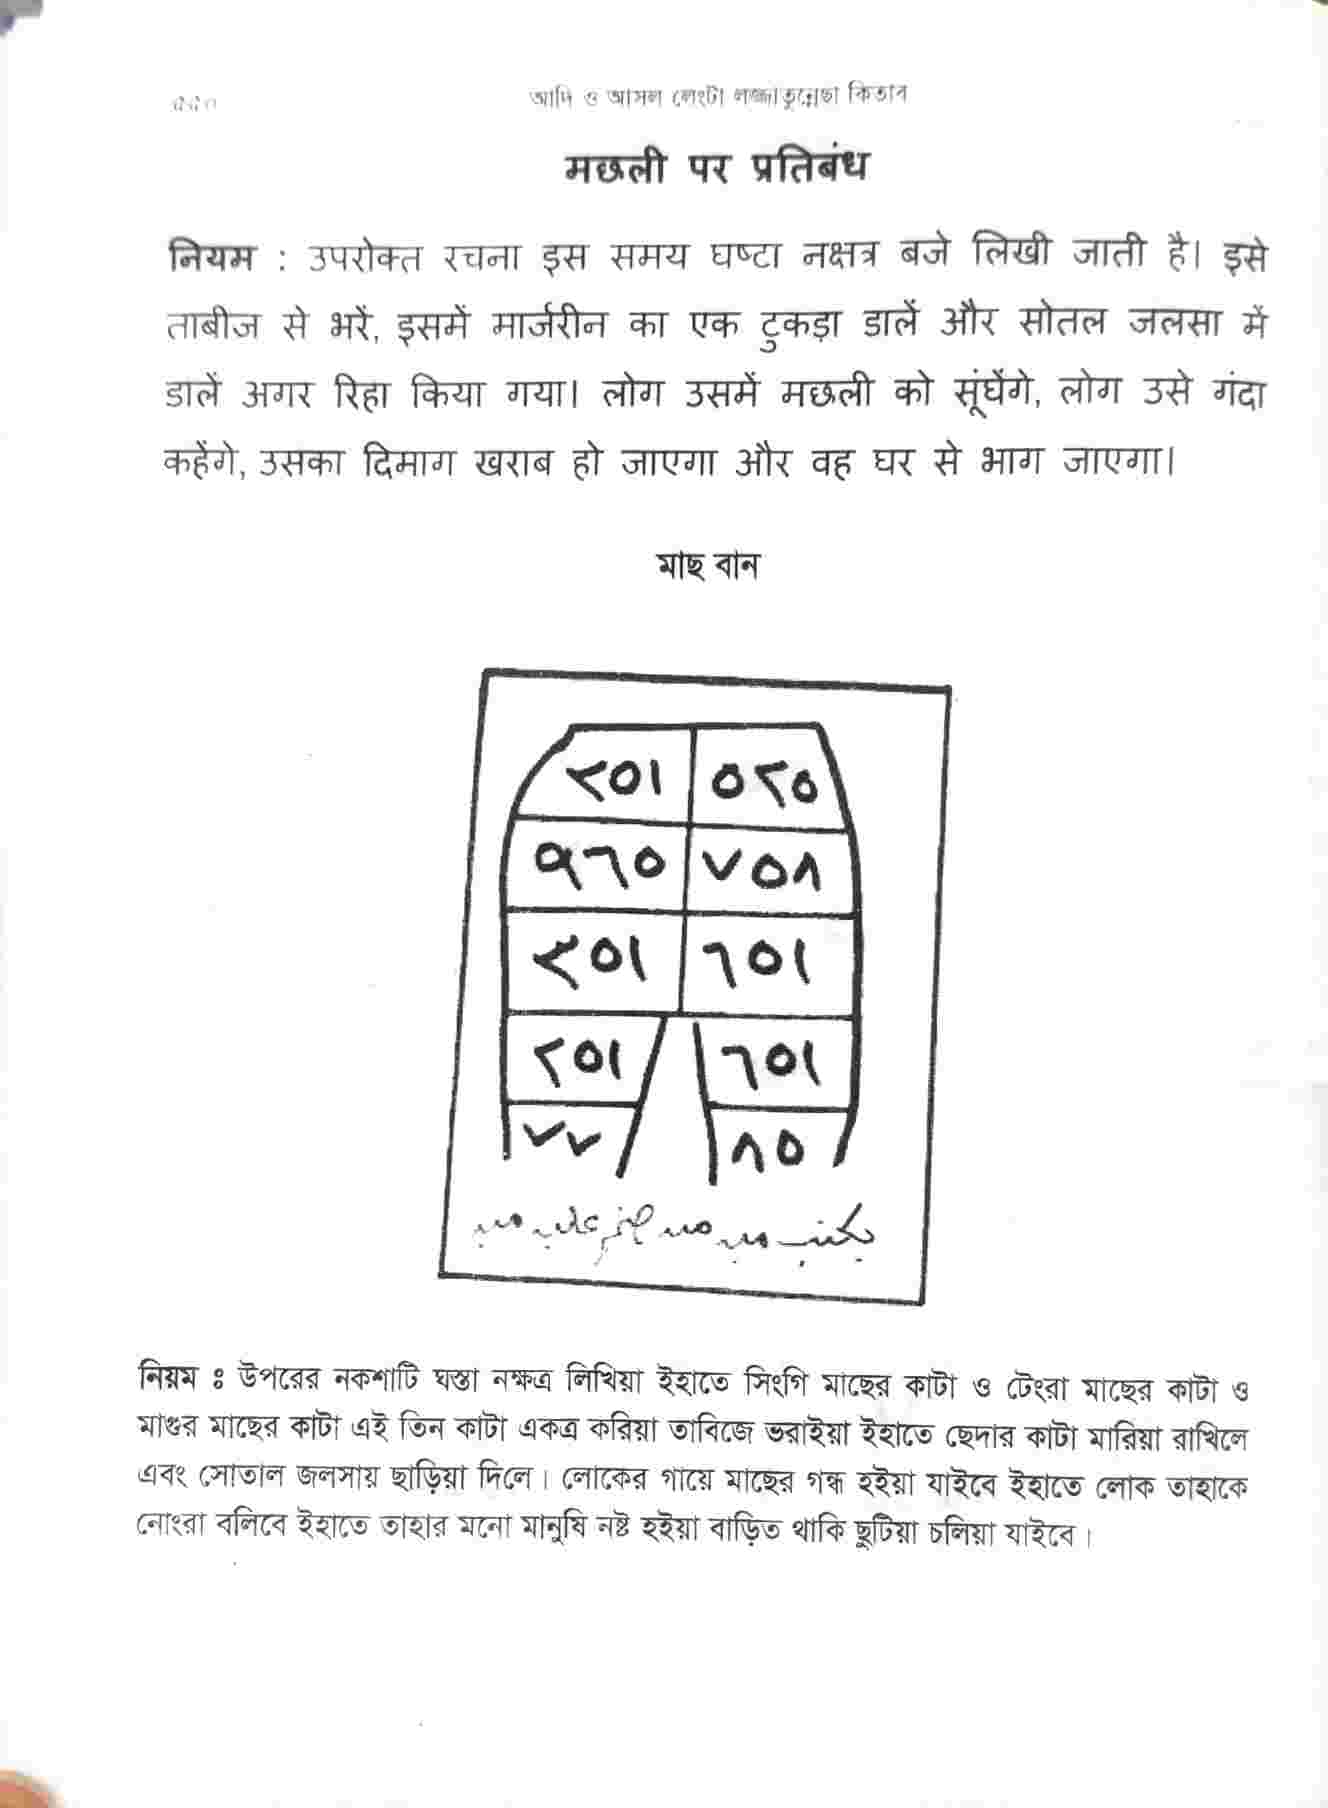 ৫৫০
আদি ও আসল লেংটা লজ্জাতুন্নেছা কিতাব
मछली पर प्रतिबंध
नियम : उपरोक्त रचना इस समय घष्टा नक्षत्र बजे लिखी जाती है। इसे
ताबीज से भरें, इसमें मार्जरीन का एक टुकड़ा डालें और सोतल जलसा में
डालें अगर रिहा किया गया। लोग उसमें मछली को सूंघेंगे, लोग उसे गंदा
कहेंगे, उसका दिमाग खराब हो जाएगा और वह घर से भाग जाएगा।
মাছ বান
٢٥١ ٥٢٥
٩٦٥ ٧٥٨
٤٥١ ٦٥١
٢٥١ ٦٥١
٧٧ ٨٥
নিয়ম ঃ উপরের নকশাটি ঘস্তা নক্ষত্র লিখিয়া ইহাতে সিংগি মাছের কাটা ও টেংরা মাছের কাটা ও
মাগুর মাছের কাটা এই তিন কাটা একত্র করিয়া তাবিজে ভরাইয়া ইহাতে ছেদার কাটা মারিয়া রাখিলে
এবং সোতাল জলসায় ছাড়িয়া দিলে। লোকের গায়ে মাছের গন্ধ হইয়া যাইবে ইহাতে লোক তাহাকে
নোংরা বলিবে ইহাতে তাহার মনো মানুষি নষ্ট হইয়া বাড়িত থাকি ছুটিয়া চলিয়া যাইবে।